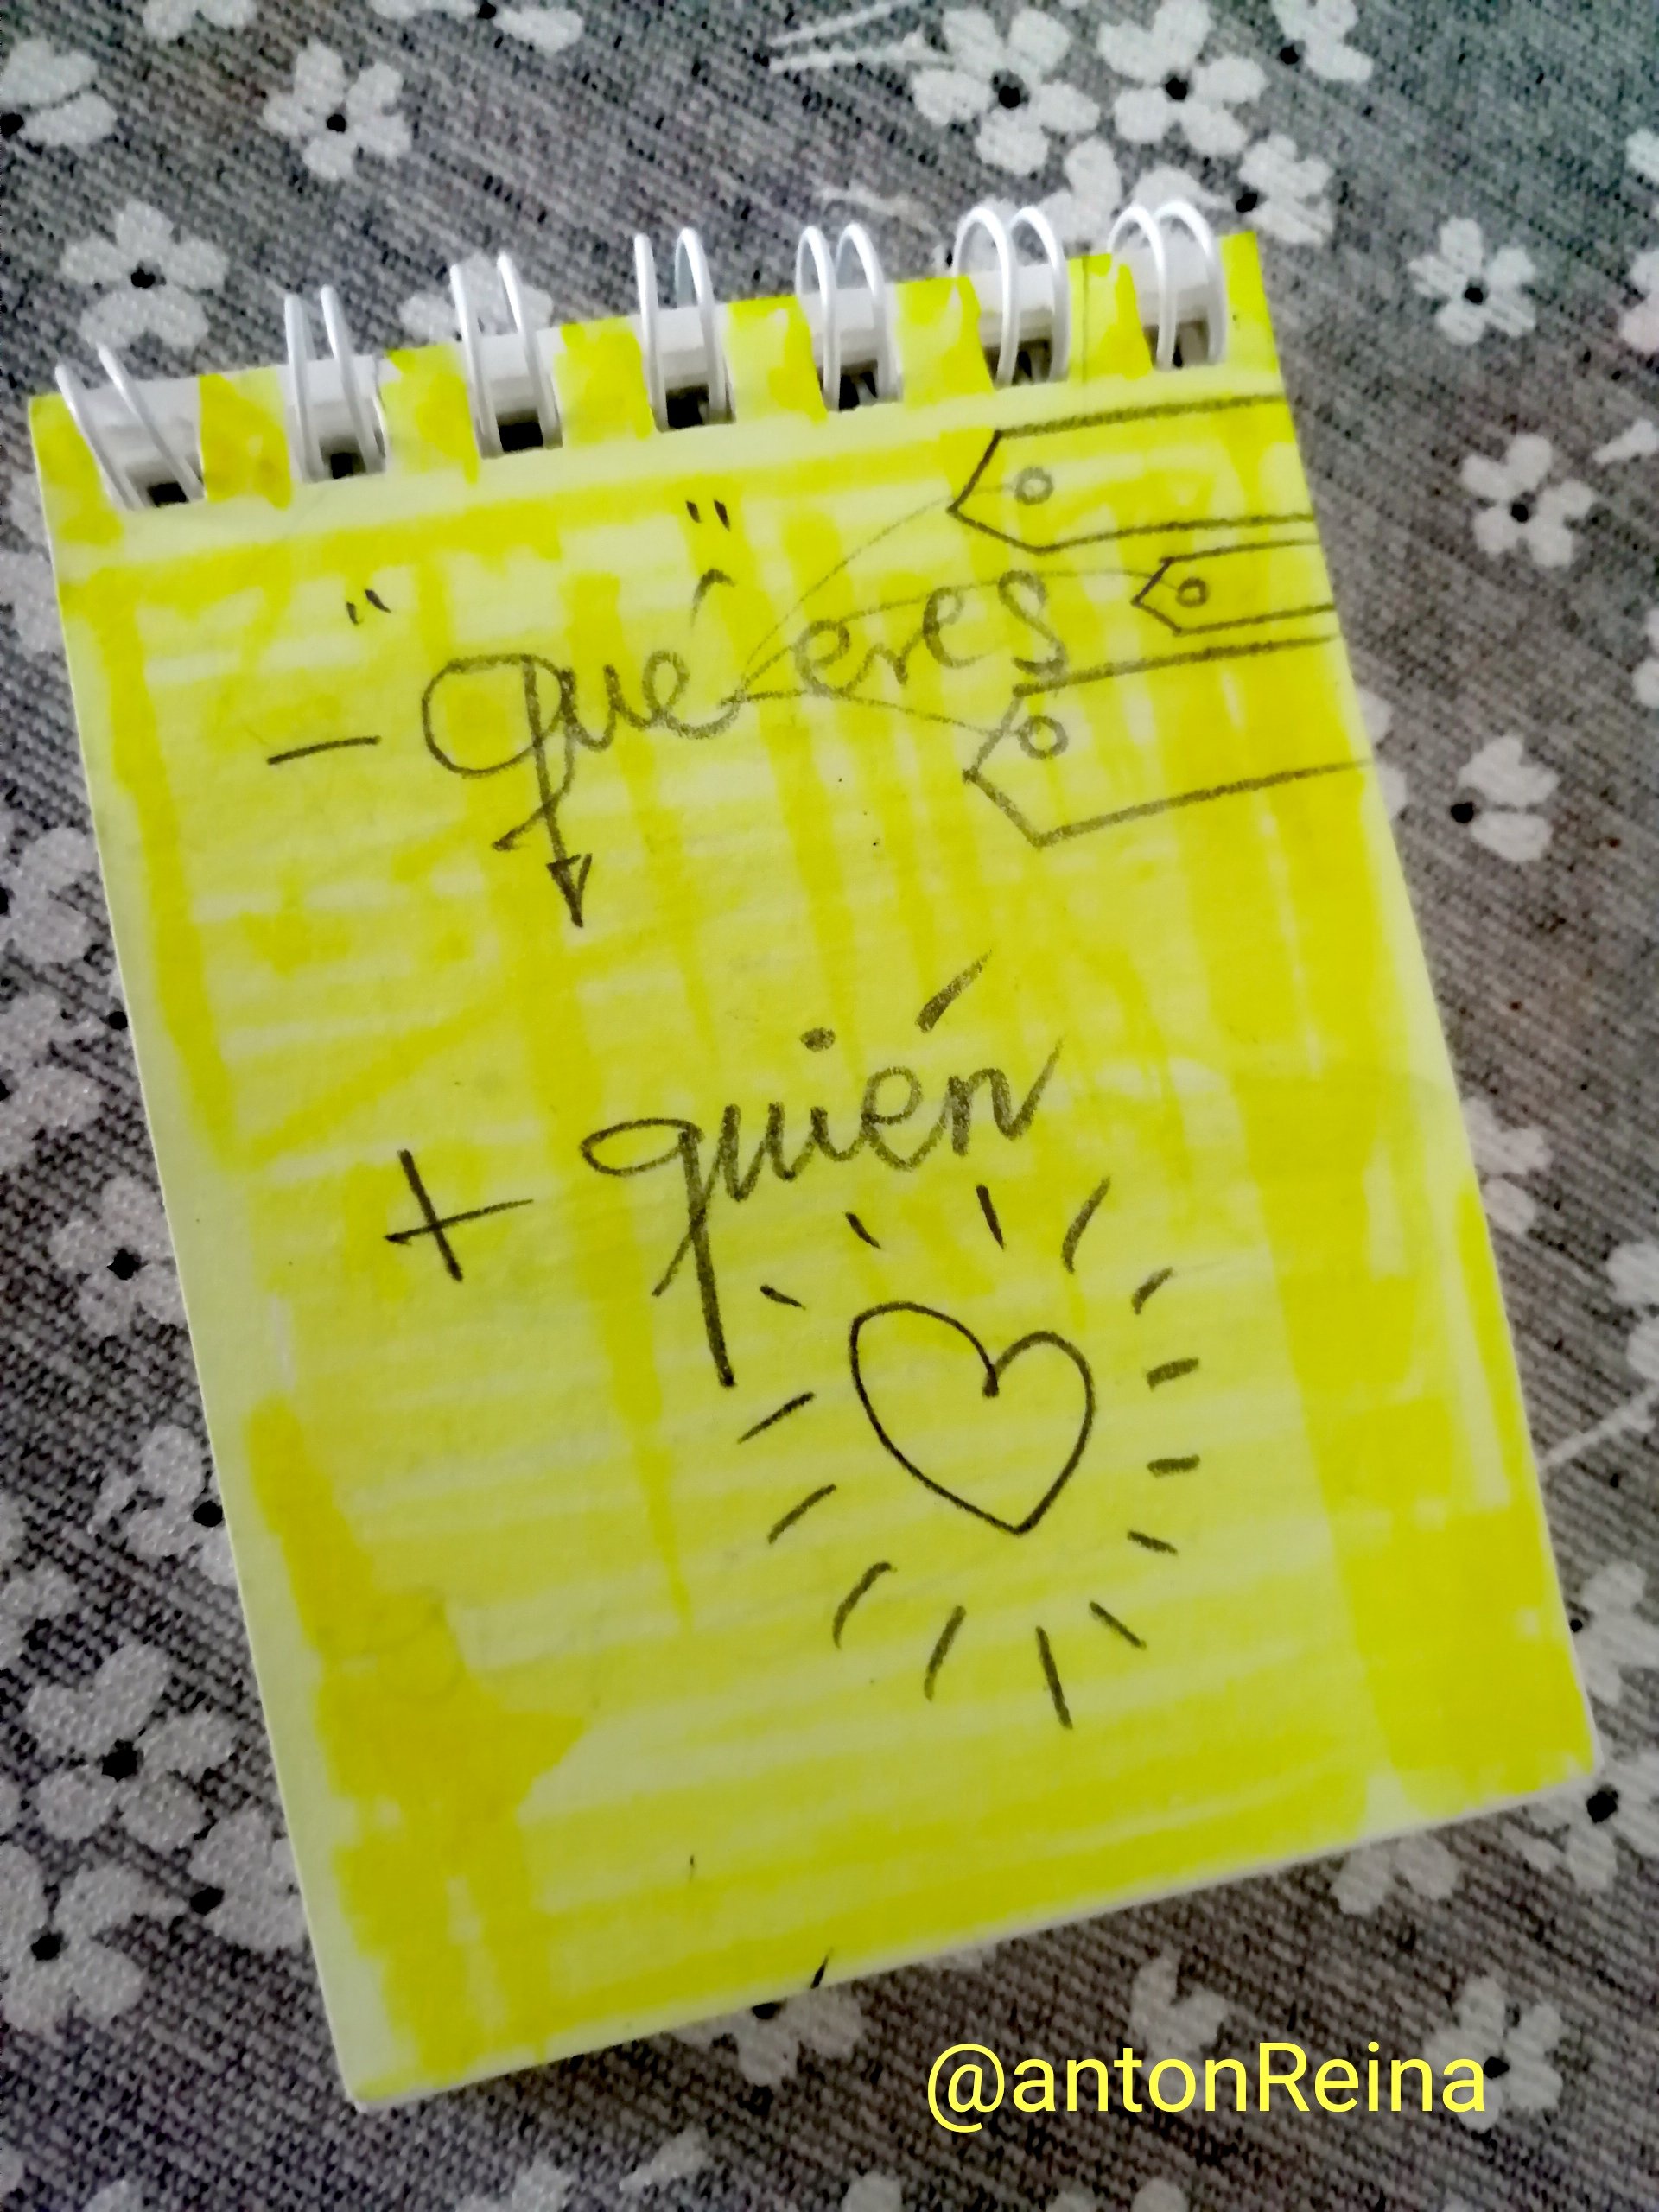 - "qué" eres
+ quién
@antonReina